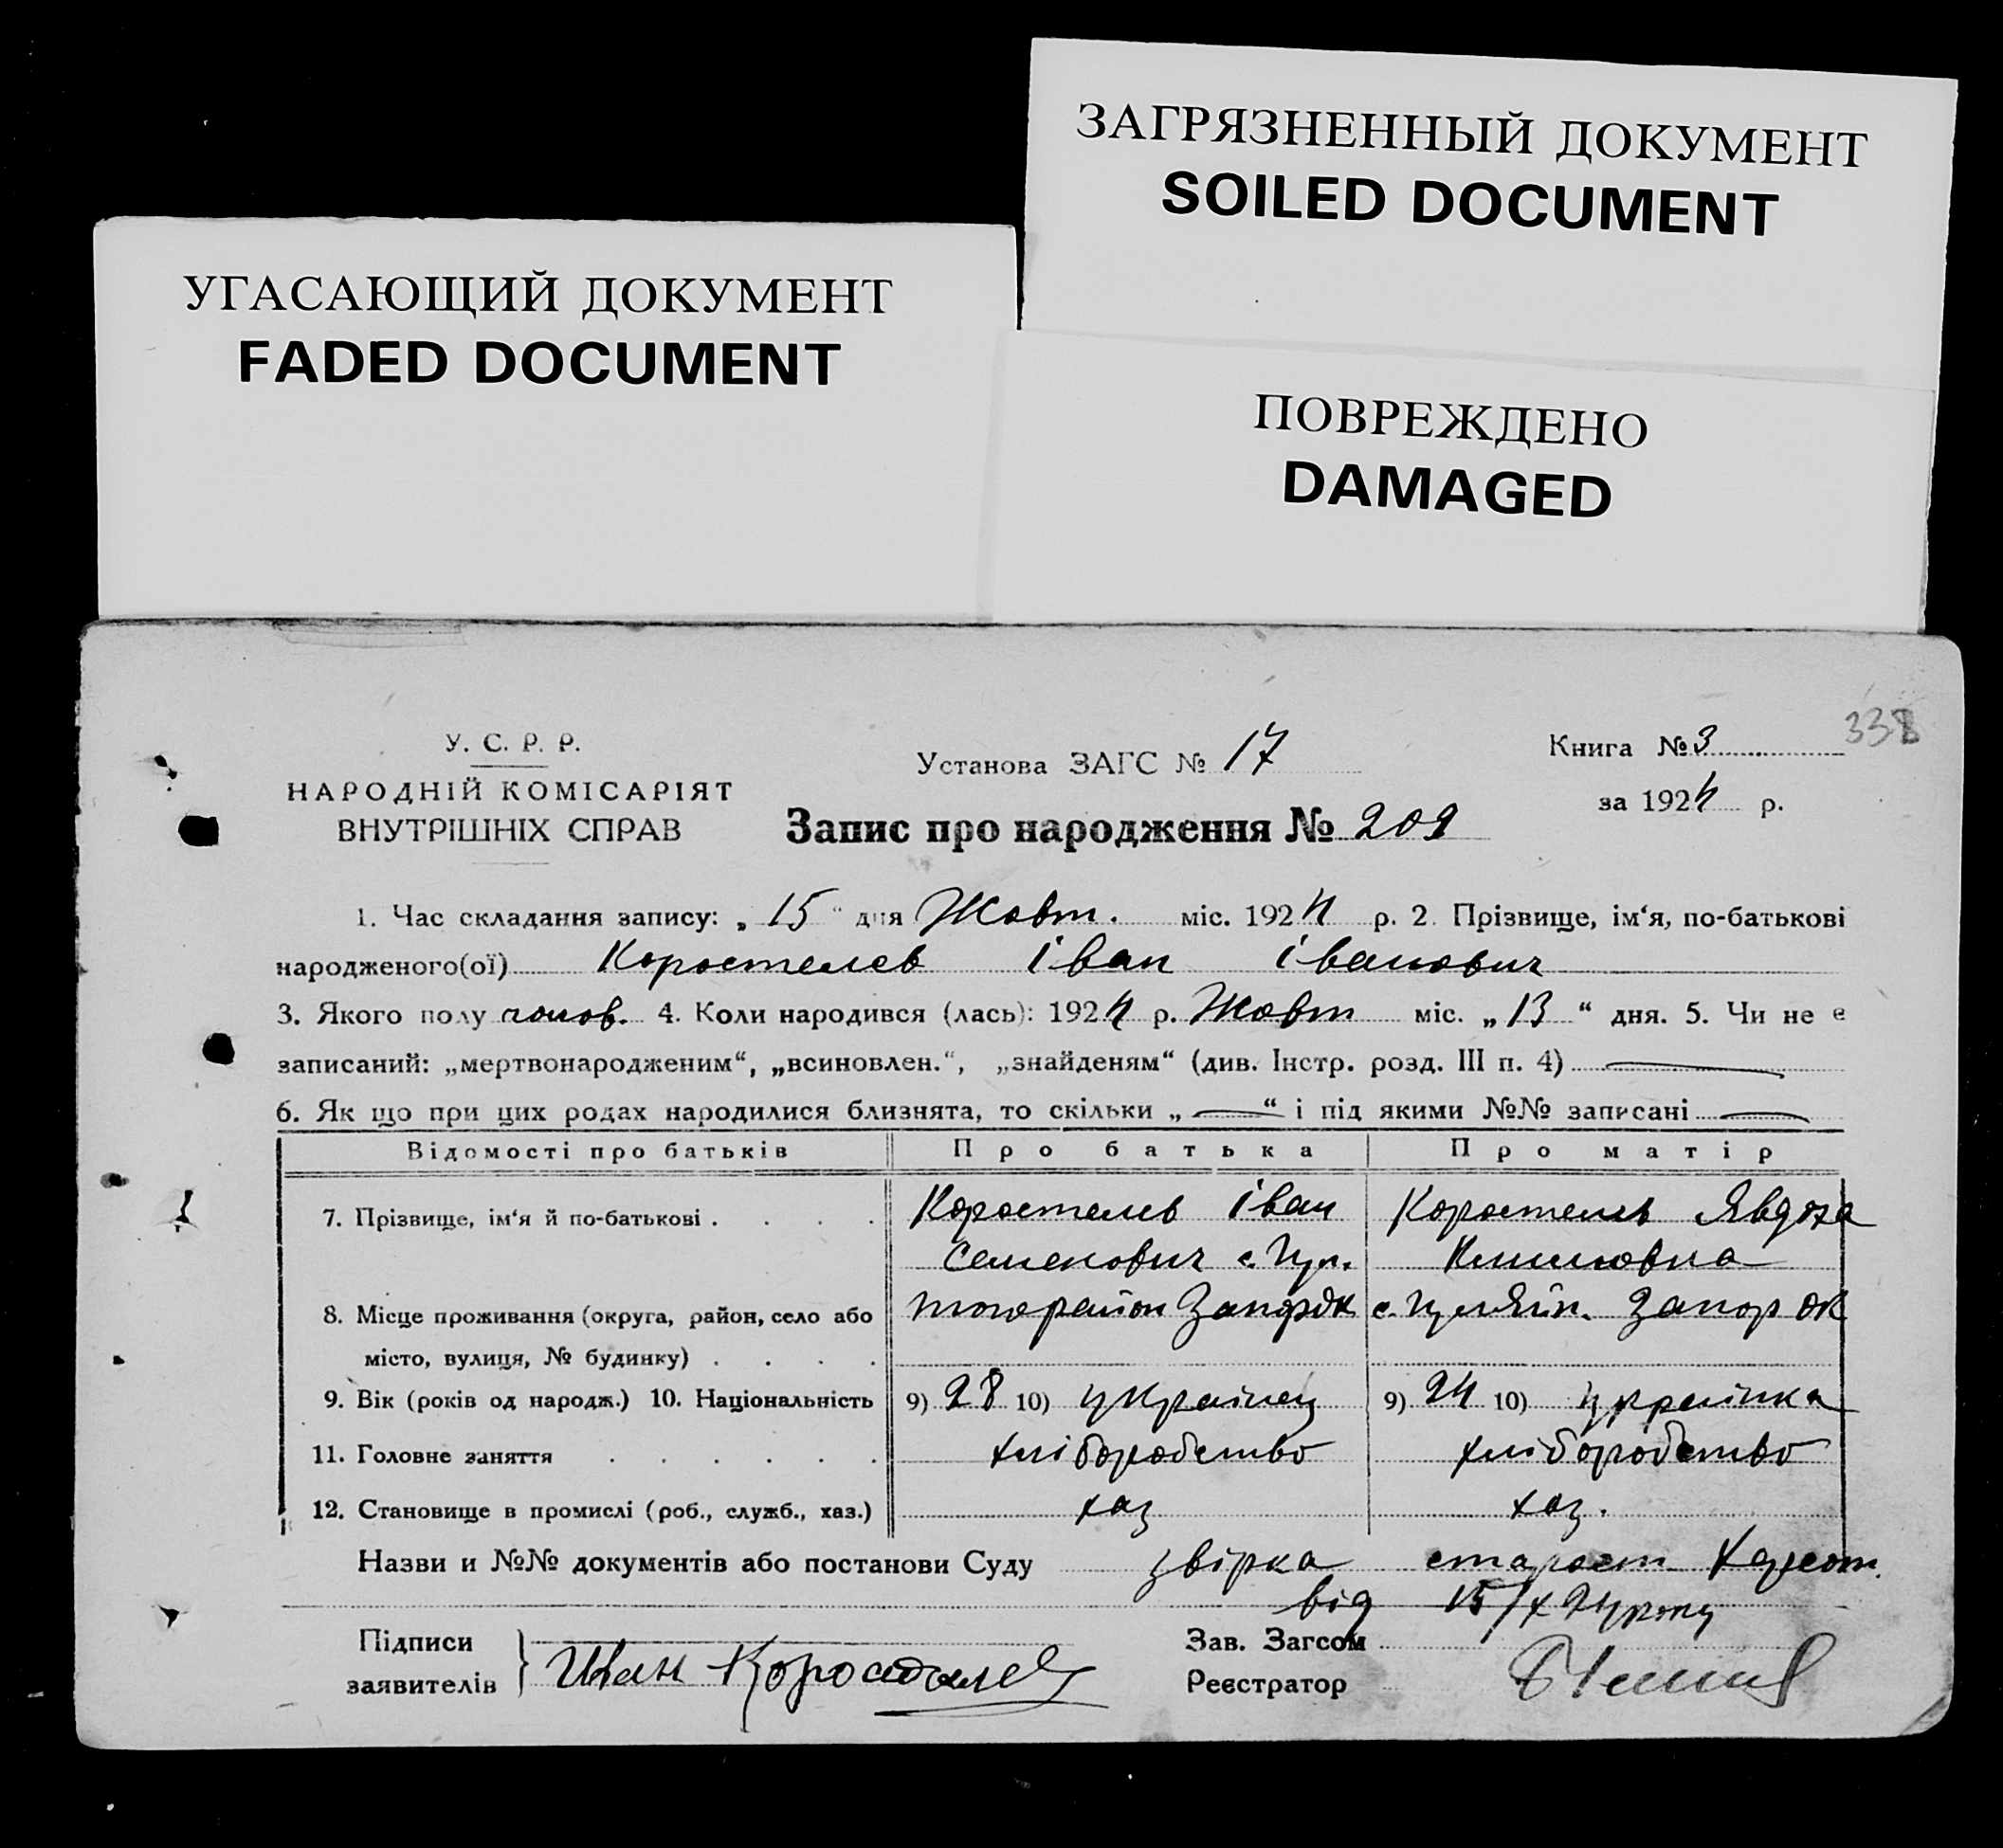 ЗАГРЯЗНЕННЫЙ ДОКУМЕНТ
SOILED DOCUMENT
УГАСАЮЩИЙ ДОКУМЕНТ
FADED DOCUMENT
ПОВРЕЖДЕНО
DAMAGED
338
У. С. Р. Р.
НАРОДНІЙ КОМІСАРІЯТ
ВНУТРІШНІХ СПРАВ
Установа ЗАГС № 17
Книга № 3
за 1924 р.
Запис про народження № 209
1. Час складання запису: „ 15 “ дня Жовт. міс. 1924 р. 2. Прізвище, ім‘я, по-батькові
народженого(ої) Коростелев Іван Іванович
3. Якого полу чолов. 4. Коли народився (лась): 1924 р. Жовт міс. „ 13 “ дня. 5. Чи не є
записаний: „мертвонародженим“, „всиновлен.“, „знайденям“ (див. Інстр. розд. III п. 4)
6. Як що при цих родах народилися близнята, то скільки „ — “ і під якими №№ записані —
Відомості про батьків Про батька Про матір
7. Прізвище, ім‘я й по-батькові . . . . Коростелев Іван Коростелев Явдоха
Семенович с. Гул.
8. Місце проживання (округа, район, село або Запор ок
місто, вулиця, № будинку) . . . .
9. Вік (років од народж.) 10. Національність 9) 28 10) українец 9) 24 10) українка
11. Головне заняття . . . . . . хліборобство хліборобство
12. Становище в промислі (роб., служб., хаз.) хаз хаз.
Назви и №№ документів або постанови Суду звірка
від 15/X 24 року
Підписи
заявителів } Иван
Зав. Загсом
Реєстратор